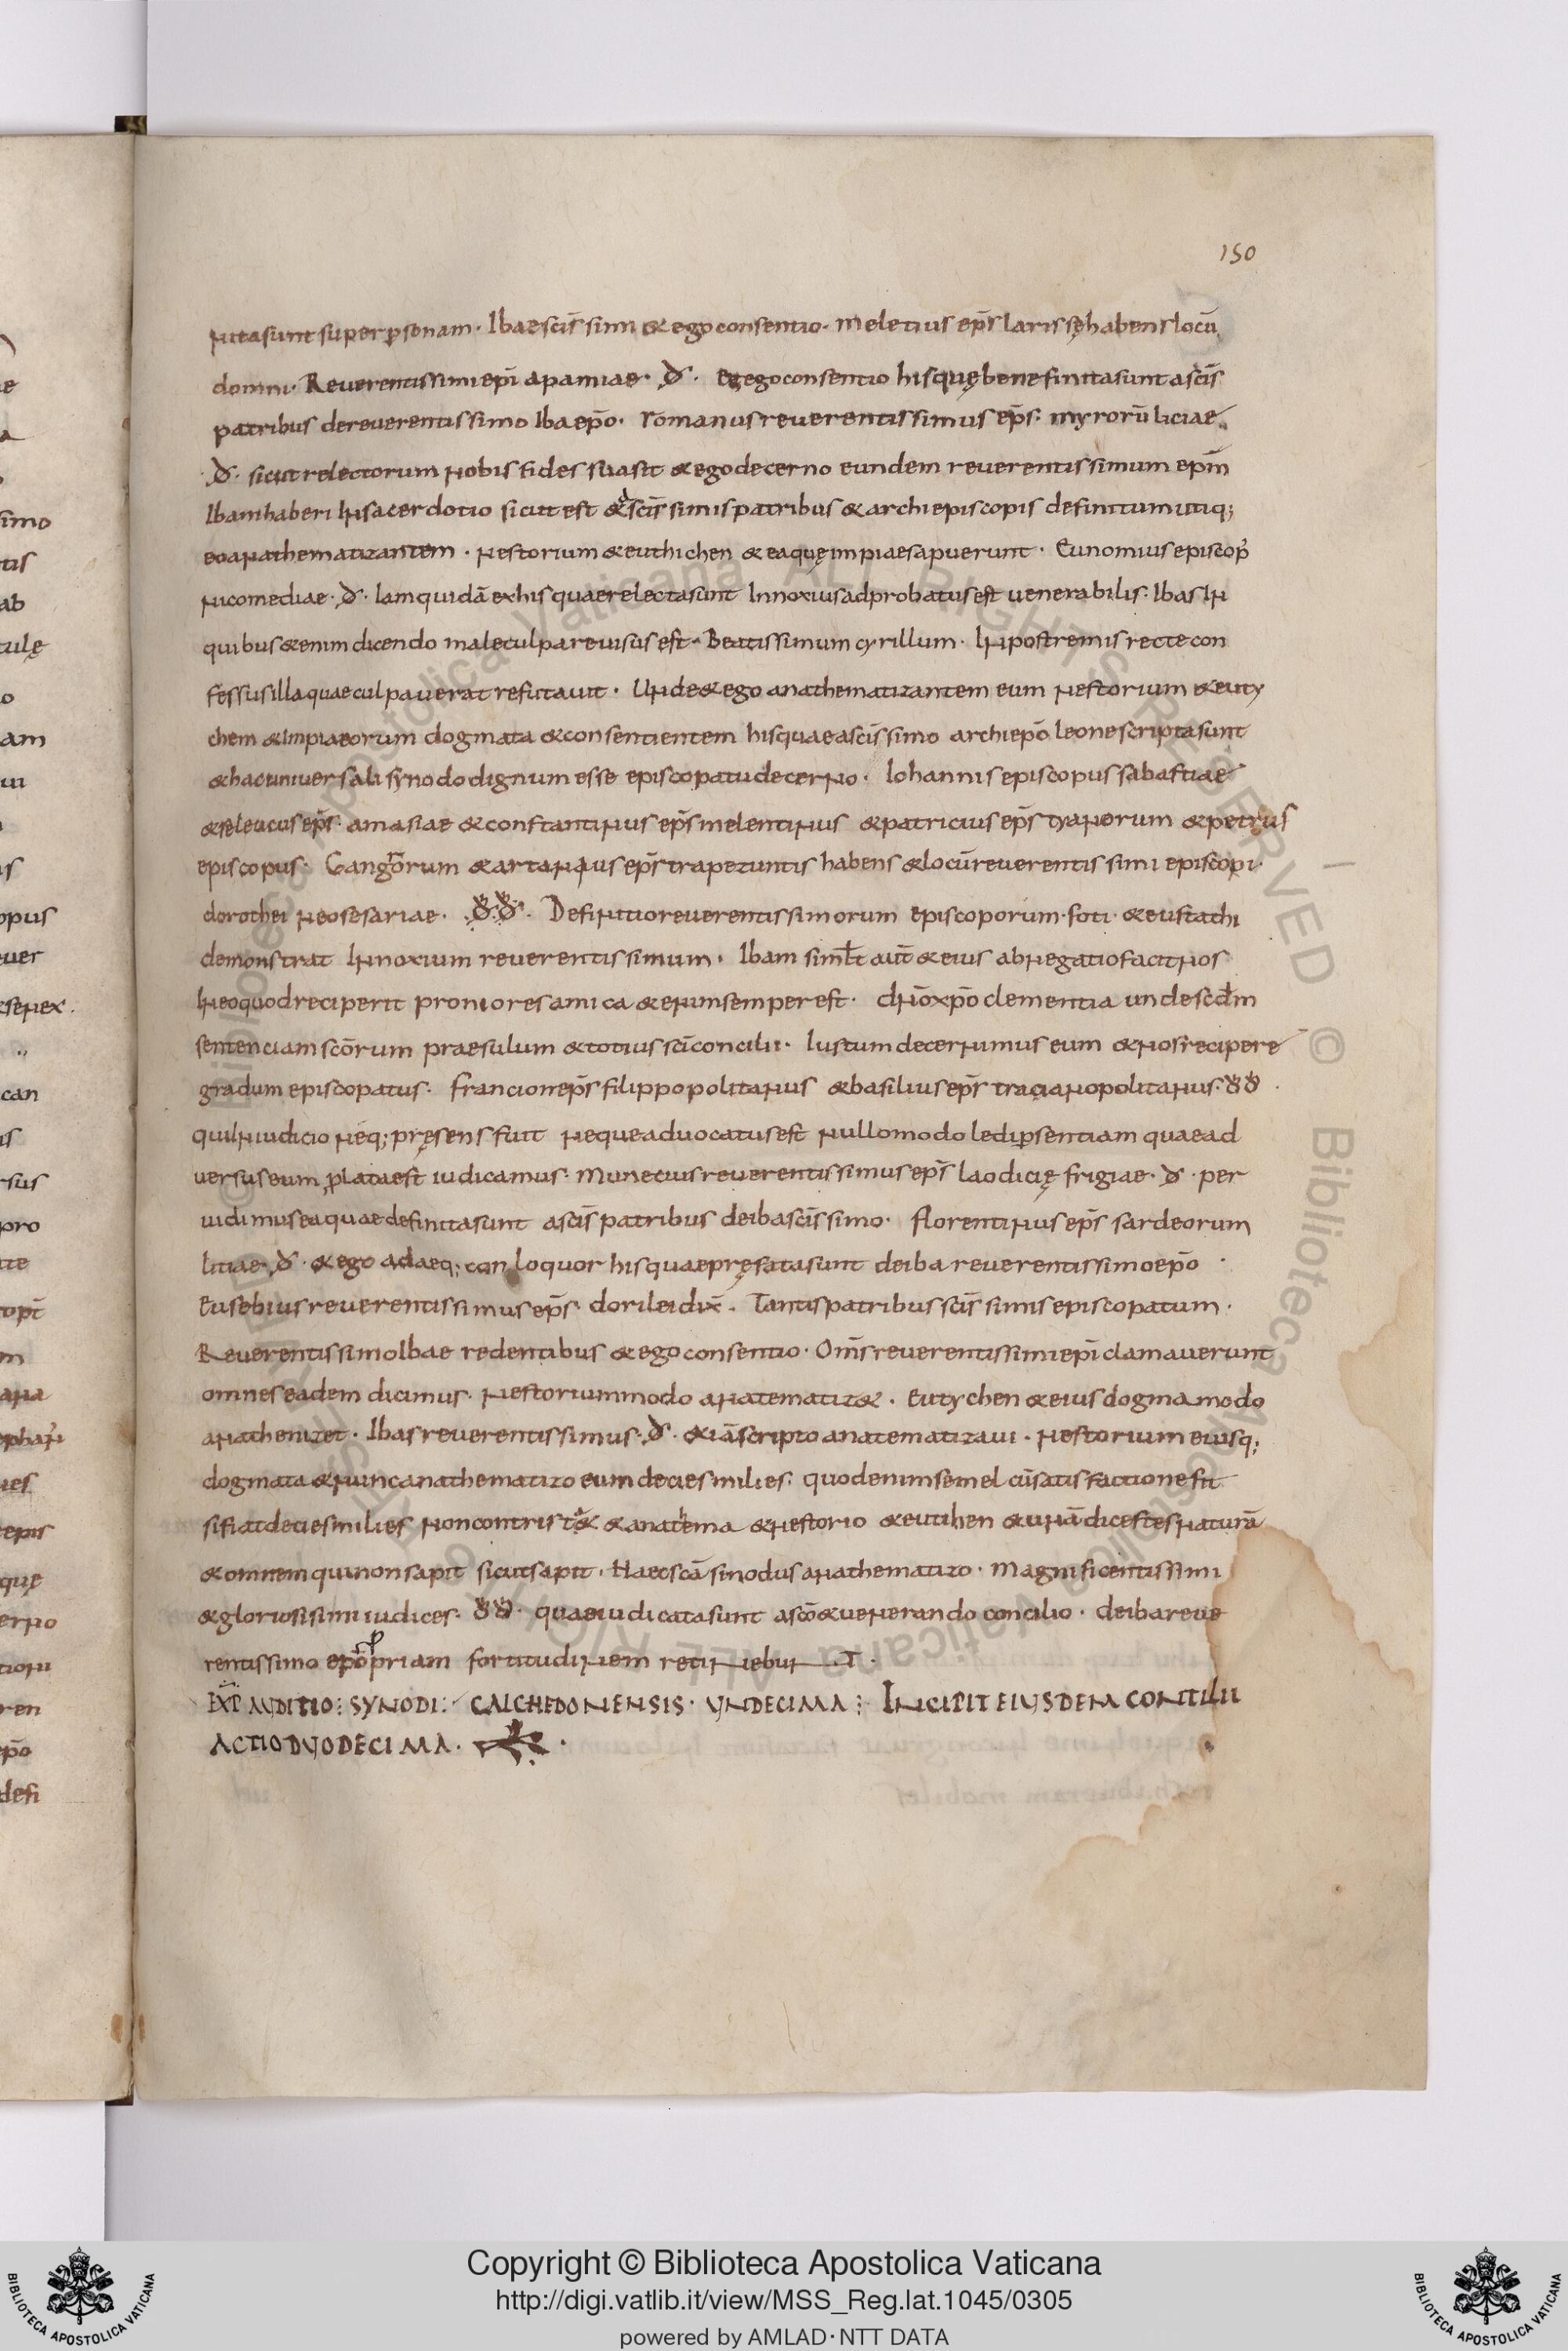 150
nita sunt super personam. Ibae scīssimi & ego consentio. meletius ep̄s larissę habens locū
domni. Reverentissimi ep̄i apamiae. đ. Et ego consentio hisquę bene finita sunt a sc̄is
patribus de reverentissimo Iba ep̄o. romanus reverentissimus ep̄s. myrorū liciae
đ. sicut relectorum nobis fides suasit & ego decerno eundem reverentissimum ep̄m
Ibam haberi In sacerdotio sicut est & a sc̄issimis patribus & archiepiscopis definitum utiq;
eo anathematizantem. nestorium & euthichen & ea quę impiae sapuerunt. Eunomius episcop'
nicomediae. đ. Iam quidā ex his quae relecta sunt Innoxius adprobatus est venerabilis. Ibas In
quibus & enim dicendo male culpare visus est. Beatissimum cyrillum. In postremis recte con
fessus illa quae culpaverat refutavit. Unde & ego anathematizantem eum nestorium & euty
chem & Impia eorum dogmata & consentientem his quae a sc̄issimo archiep̄o leone scripta sunt
& hac universali synodo dignum esse episcopatu decerno. Iohannis episcopus sabastiae
& seleucus ep̄s. amasiae & constantinus ep̄s melentinus & patricius ep̄s tyanorum & petrus
episcopus. Gangrorum & ep̄s trapezuntis habens & locū reverentissimi episcopi.
dorothei neosesariae. đđ. Definitio reverentissimorum episcoporum. foti. & eustathi
demonstrat Innoxium reverentissimum. Ibam simł aut̄ & eius abnegatio facit nos
In eo quod reciperit proniores amica & enim semper est. clementia unde scdm
sentenciam sc̄orum praesulum & totius sc̄i concilii. Iustum decernimus eum & nos recipere
gradum episcopatus. francion ep̄s filippopolitanus & basilius ep̄s traçianopolitanus. đđ.
qui In iudicio neq; pręsens fuit neque advocatus est nullo modo ledi p sentiam quae ad
versus eum plata est iudicamus. Munecius reverentissimus ep̄s laodicię frigiae. đ. per
vidimus ea quae definita sunt a sc̄is patribus de iba sc̄issimo. florentinus ep̄s sardeorum
litiae. đ. & ego adaeq; conloquor his quae pręfata sunt de iba reverentissimo ep̄o
Eusebius reverentissimus ep̄s. dorilei dix̄. Tantis patribus sc̄issimis episcopatum.
Reverentissimo Ibae redentibus & ego consentio. Om̄s reverentissimi ep̄i clamaverunt
omnes eadem dicimus. nestorium modo anatematiz&. Eutychen & eius dogma modo
anathemizet. Ibas reverentissimus. đ. & iā scripto anatematizavi. nestorium eiusq;
dogmata & nunc anathematizo eum decies milies. quod enim semel cū satisfactione fit
si fiat decies milies non contristat & anathema & nestorio & eutihen & unā dicestes naturā
& omnem qui non sapit sicut sapit. Haec sc̄a sinodus anathematizo. Magnificentissimi
& gloriosisimi iudices. đđ. quae iudicata sunt a sc̄o & venerando concilio. de iba reve
rentissimo ep̄o ppriam fortitudinem retinebunT.
EXP AUDITIO: SYNODI: CALCHEDONENSIS. UNDECIMA: INCIPIT EIUSDEM CONTILII
ACTIO DUODECIMA.
Copyright © Biblioteca Apostolica Vaticana
http://digi.vatlib.it/view/MSS_Reg.lat.1045/0305
powered by AMLAD·NTT DATA